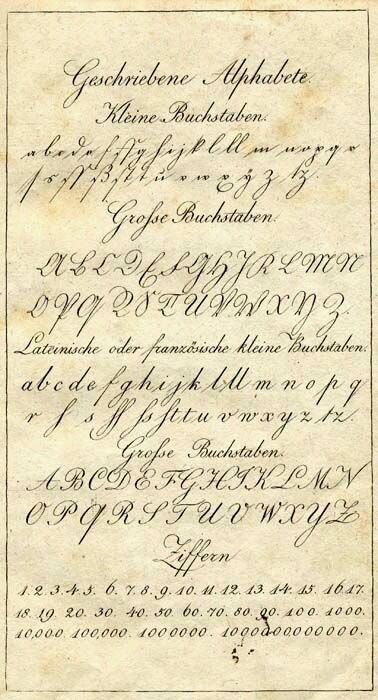 Geschriebene Alphabete.
Kleine Buchstaben.
a b c d e f ff g h i j k l ll m n o p q r
ſ s ſſ ß ſt t u v w x y z tz.
Grosse Buchstaben.
A B C D E F G H J K L M N
O P Q R S T U V W X Y Z.
Lateinische oder französische kleine Buchstaben.
a b c d e f g h i j k l ll m n o p q
r ſ s ff ſs ſt t u v w x y z tz.
Grosse Buchstaben.
A B C D E F G H I K L M N
O P Q R S T U V W X Y Z
Ziffern
1. 2. 3. 4. 5. 6. 7. 8. 9. 10. 11. 12. 13. 14. 15. 16. 17.
18. 19. 20. 30. 40. 50. 60. 70. 80. 90. 100. 1000.
10,000. 100,000. 1000000. 100000000000.